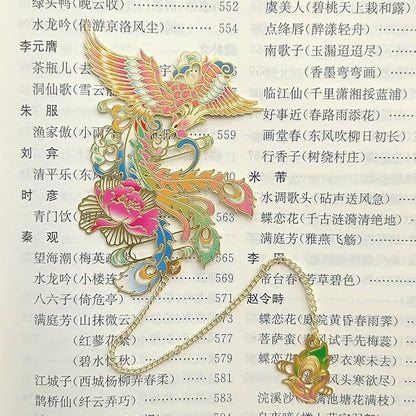 绿头鸭（晚云收） 552
水龙吟（倦游京洛风尘） 554
李元膺
茶瓶儿（去 宇） 555
洞仙歌（雪云
朱 服
渔家傲（小雨 559
刘 弇
清平乐（东风
时 彦
青门饮 563
秦 观
望海潮（梅英 565
水龙吟（小楼连 569
八六子（倚危亭） 571
满庭芳（山抹微云
（红蓼花繁
（碧水惊秋） 576
江城子（西城杨柳弄春柔） 578
鹊桥仙（纤云弄巧） 581
虞美人（碧桃天上栽和露）
点绛唇（醉漾轻舟）
南歌子（玉漏迢迢尽）
（香墨弯弯画）
临江仙（千里潇湘挼蓝浦）
好事近（春路雨添花）
画堂春（东风吹柳日初长）
行香子（树绕村庄）
米 芾
水调歌头（砧声送风急）
蝶恋花（千古涟漪清绝地）
满庭芳（雅燕飞觞）
李
帝台春（芳草碧色）
赵令畤
蝶恋花（庭院黄昏春雨霁）
菩萨蛮（ 试手先梅蕊）
蝶恋花（ 罗衣寒未去）
风头寒欲尽）
浣溪沙（ 池塘花满枝）